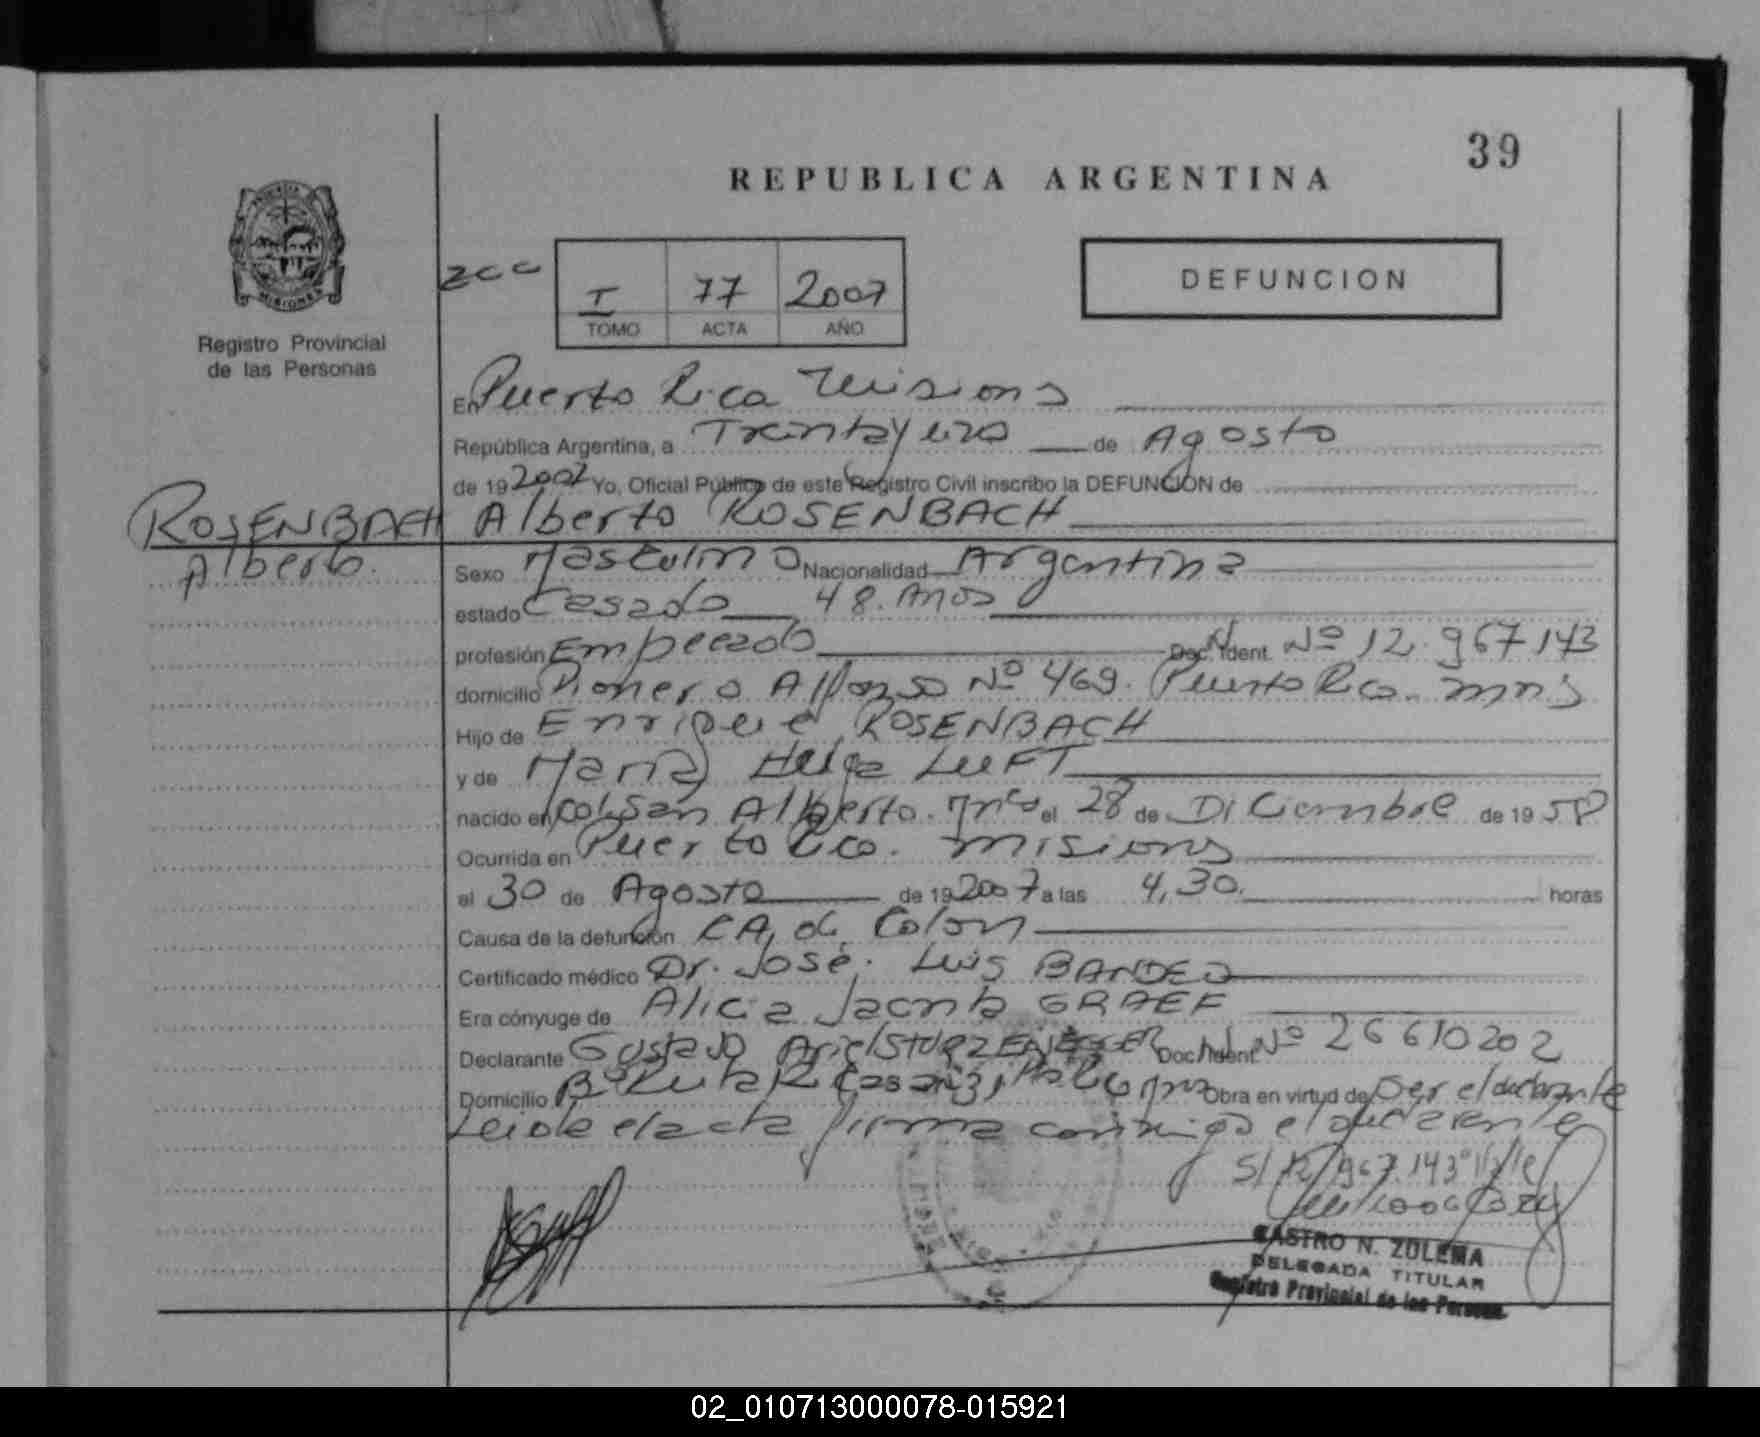 39
REPUBLICA ARGENTINA
I 77 2007
TOMO ACTA AÑO
DEFUNCION
MISIONES
Registro Provincial
de las Personas
En Puerto Rico Misions
República Argentina, a Treinta y uno de Agosto
de 19 2007 Yo, Oficial Público de este Registro Civil inscribo la DEFUNCION de
ROSENBACH Alberto ROSENBACH
Alberto.
Sexo Masculino Nacionalidad Argentina
estado Casado 48. Años
profesión Empleado Doc. Ident. Nº 12.967143
domicilio Pionero Alfonso Nº 469. Puerto Rico. mns
Hijo de Enrique ROSENBACH
y de María Helga LUFT
nacido en Col. San Alberto. Mns el 28 de Diciembre de 19 58
Ocurrida en Puerto Rco. misions
el 30 de Agosto de 19 2007 a las 4,30. horas
Causa de la defunción CA, de Colon
Certificado médico Dr. José. Luis BANDEO
Era cónyuge de Alicia Jacinta GRAEF
Declarante Gustavo Ariel Doc. Ident. Nº 26610202
Domicilio Bº Ruta Obra en virtud de Ser el declarante
Leida el acta firma conmigo el declarante
S/ 12/967.143
CASTRO N. ZULEMA
DELEGADA TITULAR
Registro Provincial de las Personas
02_010713000078-015921